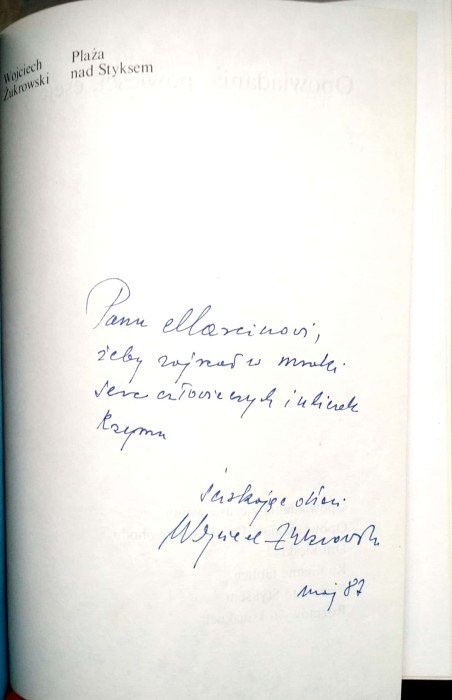 Wojciech
Żukrowski
Plaża
nad Styksem
Panu Marcinowi,
żeby zajrzał w mroki
serc człowieczych i uliczek
Rzymu
ściskając dłoń
Wojciech Żukrowski
maj 87